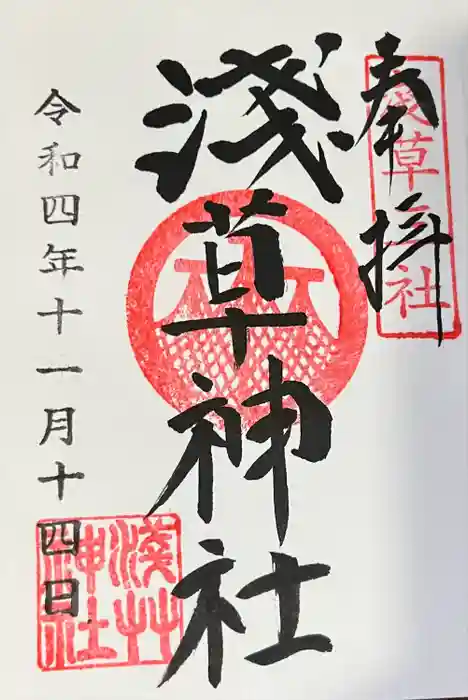 奉拝
浅草三社
淺草神社
令和四年十一月十四日
淺草
神社